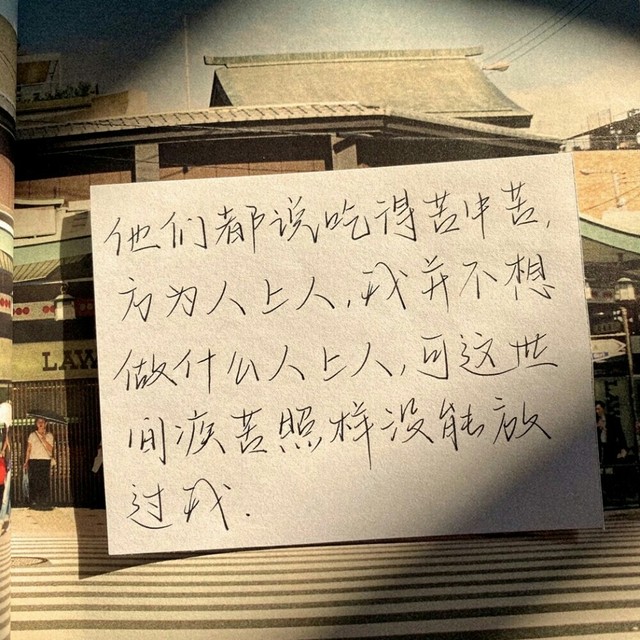 他们都说吃得苦中苦，
方为人上人，我并不想
做什么人上人，可这世
间疾苦照样没能放
过我.
LAW